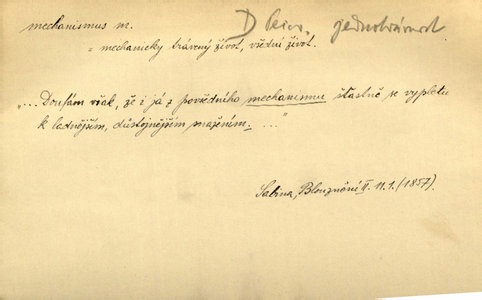 mechanismus m. D jednotvárnost
= mechanicky trávený život, všední život.
„... Doufám však, že i já z povšedního mechanismu šťastně se vypletu
k ladnějším, důstojnějším snažením. ..."
Sabina, Blouznění II. 11.1. (1857).